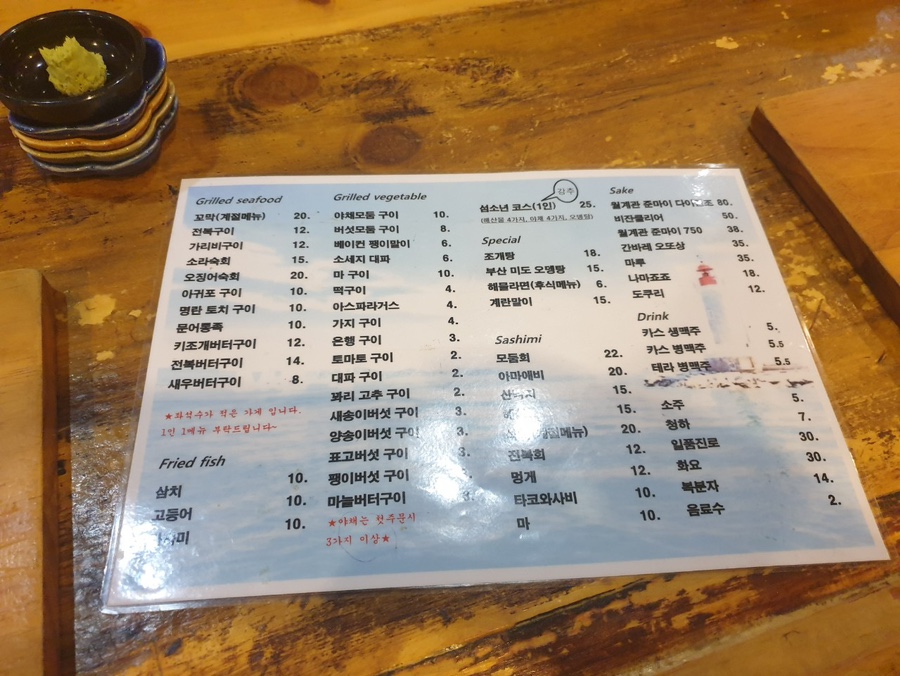 Grilled seafood
꼬막(계절메뉴) 20.
전복구이 12.
가리비구이 12.
소라숙회 15.
오징어숙회 20.
아귀포 구이 10.
명란 토치 구이 10.
문어통족 10.
키조개버터구이 12.
전복버터구이 14.
새우버터구이 8.
★좌석수가 적은 가게 입니다.
1인 1메뉴 부탁드립니다~
Fried fish
삼치 10.
고등어 10.
10.
Grilled vegetable
야채모둠 구이 10.
버섯모둠 구이 8.
베이컨 팽이말이 6.
소세지 대파 6.
마 구이 10.
떡구이 4.
아스파라거스 4.
가지 구이 4.
은행 구이 3.
토마토 구이 2.
대파 구이 2.
꽈리 고추 구이 2.
새송이버섯 구이 3.
양송이버섯 구이 3.
표고버섯 구이 3.
팽이버섯 구이 3.
마늘버터구이 3.
★야채는 첫주문시
3가지 이상★
강추
섬소년 코스(1인) 25.
(해산물 4가지, 야채 4가지, 오뎅탕)
Special
조개탕 18.
부산 미도 오뎅탕 15.
해물라면(후식메뉴) 6.
계란말이 15.
Sashimi
모둠회 22.
아마애비 20.
15.
15.
20.
전복회 12.
멍게 12.
타코와사비 10.
마 10.
Sake
월계관 준마이 다이긴조 80.
비잔클리어 50.
월계관 준마이 750 38.
간바레 오또상 35.
마루 35.
나마죠죠 18.
도쿠리 12.
Drink
카스 생맥주 5.
카스 병맥주 5.5
테라 병맥주 5.5
소주 5.
청하 7.
일품진로 30.
화요 30.
복분자 14.
음료수 2.